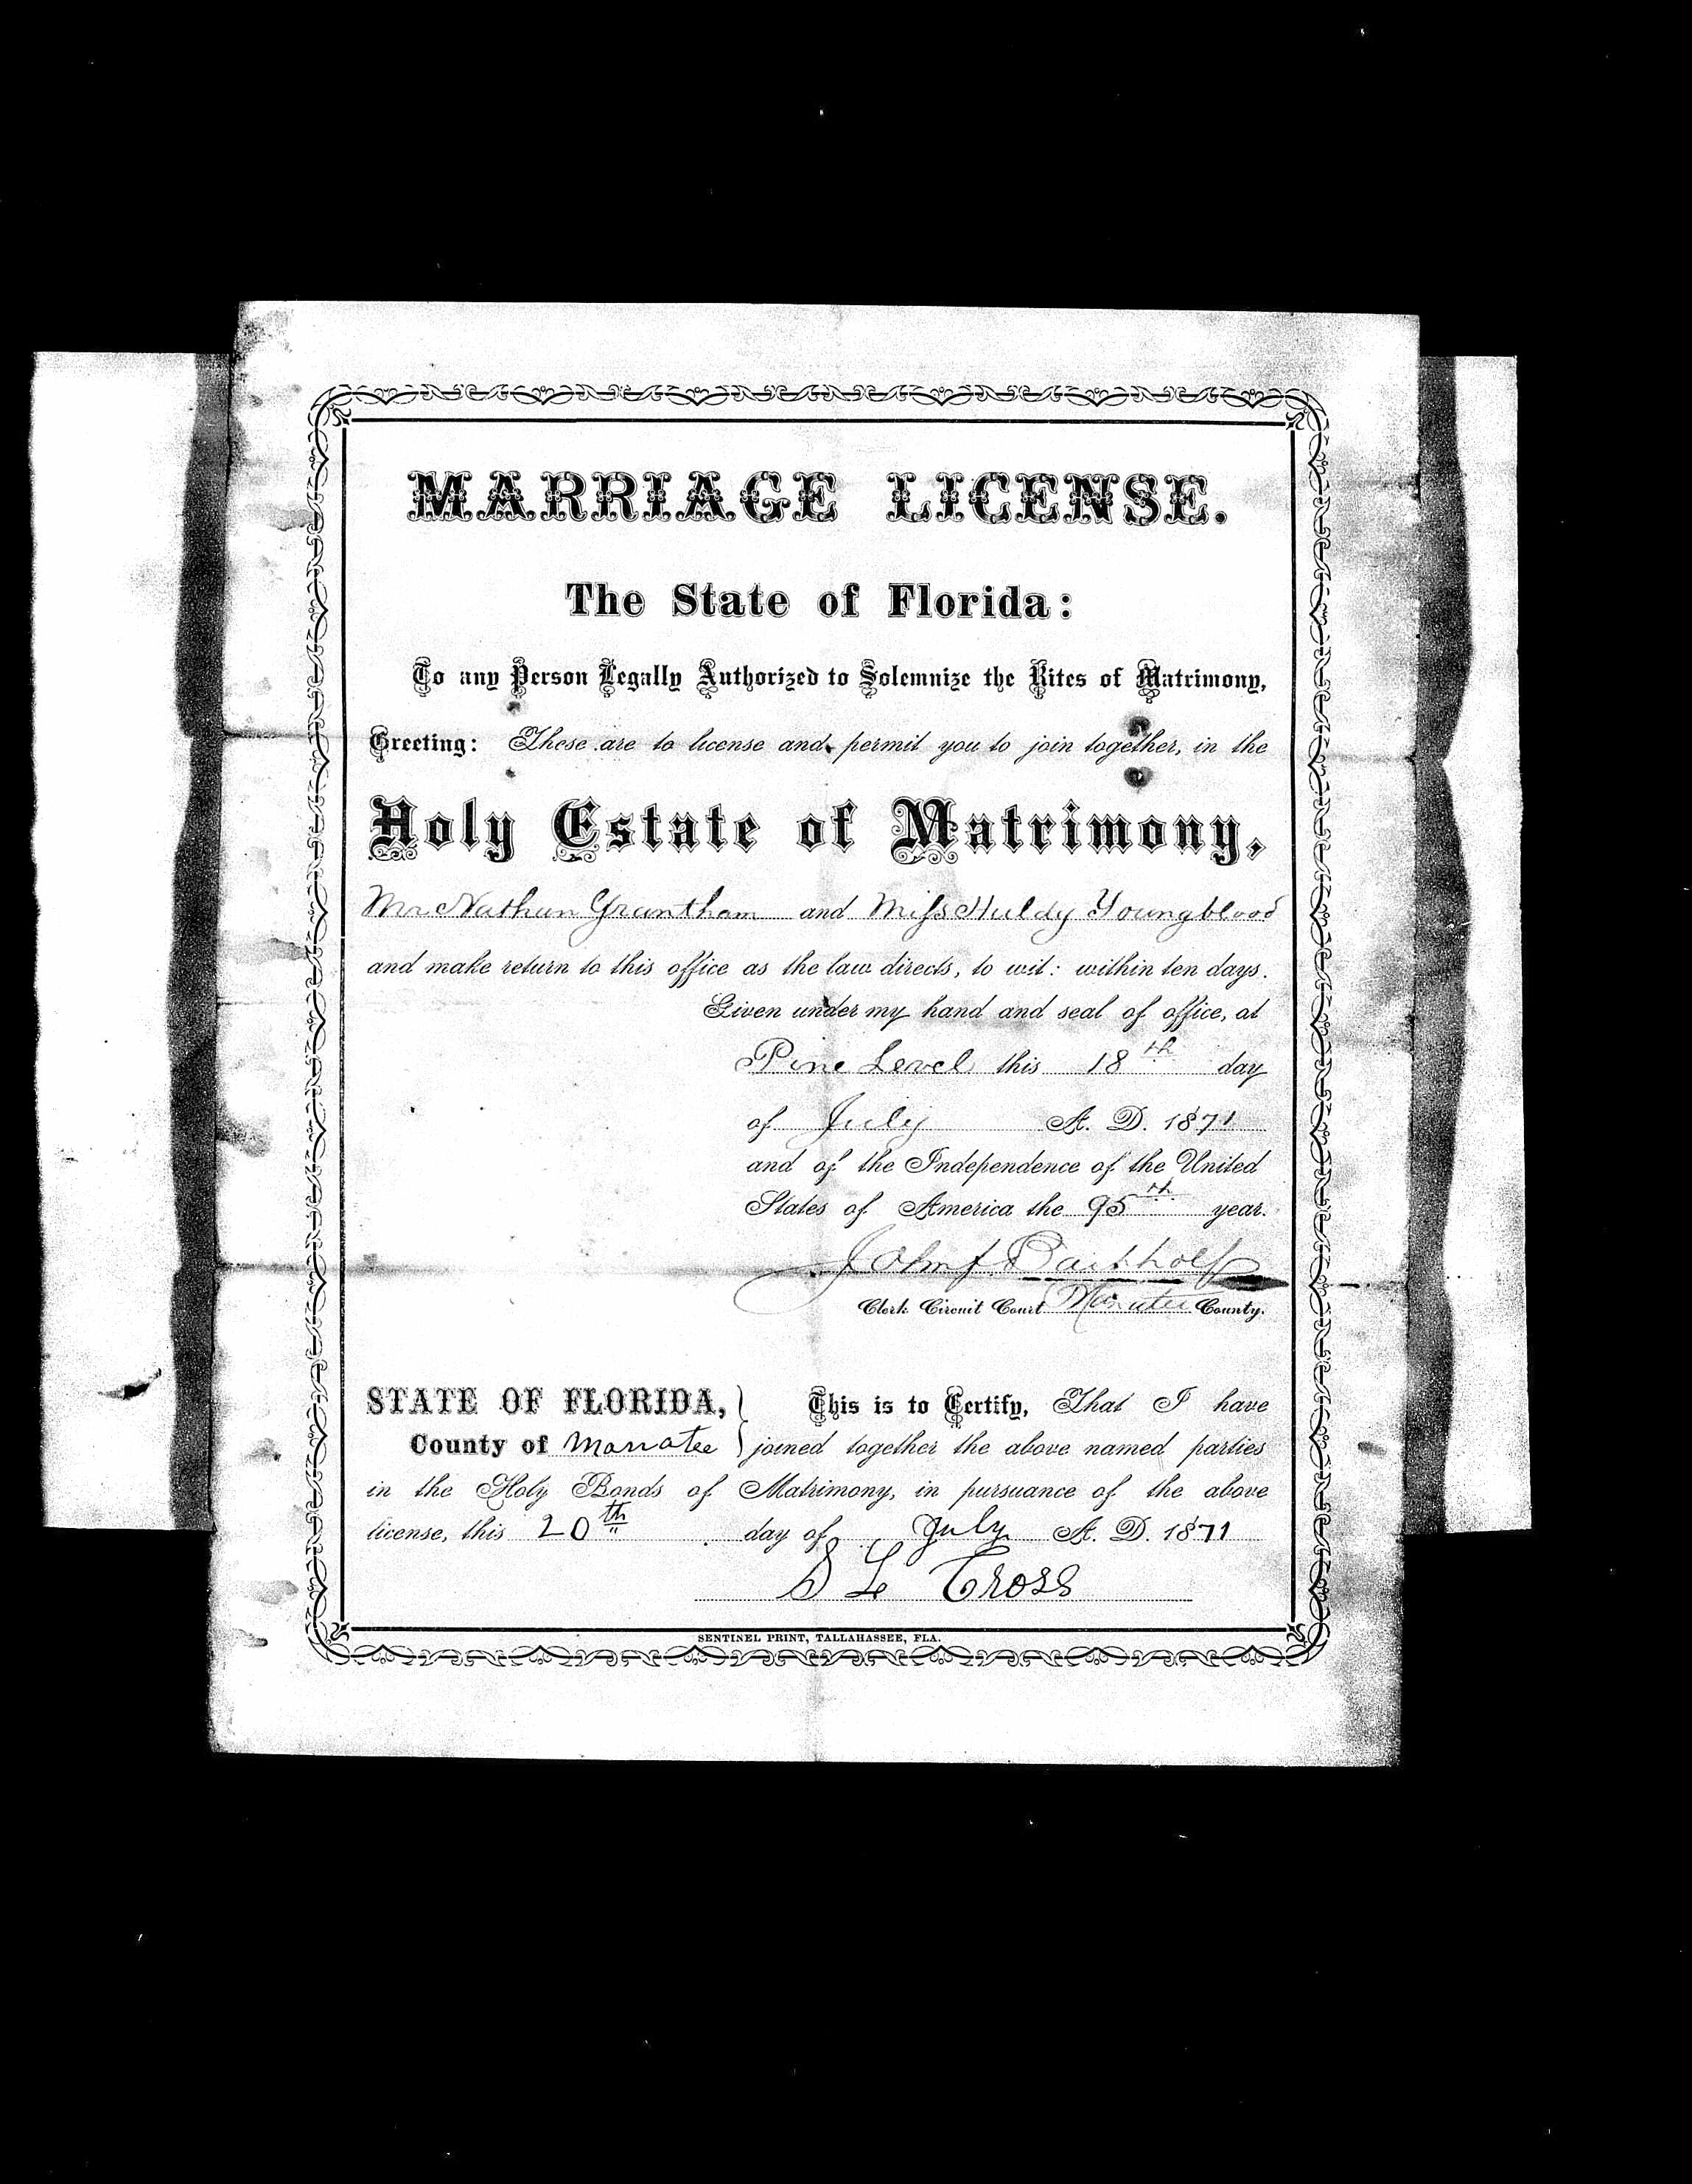 MARRIAGE LICENSE.
The State of Florida:
To any Person Legally Authorized to Solemnize the Rites of Matrimony,
Greeting: These are to license and permit you to join together, in the
Holy Estate of Matrimony,
Mr Nathan Grantham and Miss Huldy Youngblood
and make return to this office as the law directs, to wit: within ten days.
Given under my hand and seal of office, at
Pine Level this 18th day
of July A. D. 1871
and of the Independence of the United
States of America the 95th year.
John F. Bartholf
Clerk Circuit Court Manatee County.
STATE OF FLORIDA, This is to Certify, That I have
County of Manatee joined together the above named parties
in the Holy Bonds of Matrimony, in pursuance of the above
license, this 20th day of July A. D. 1871
S L Cross
SENTINEL PRINT, TALLAHASSEE, FLA.